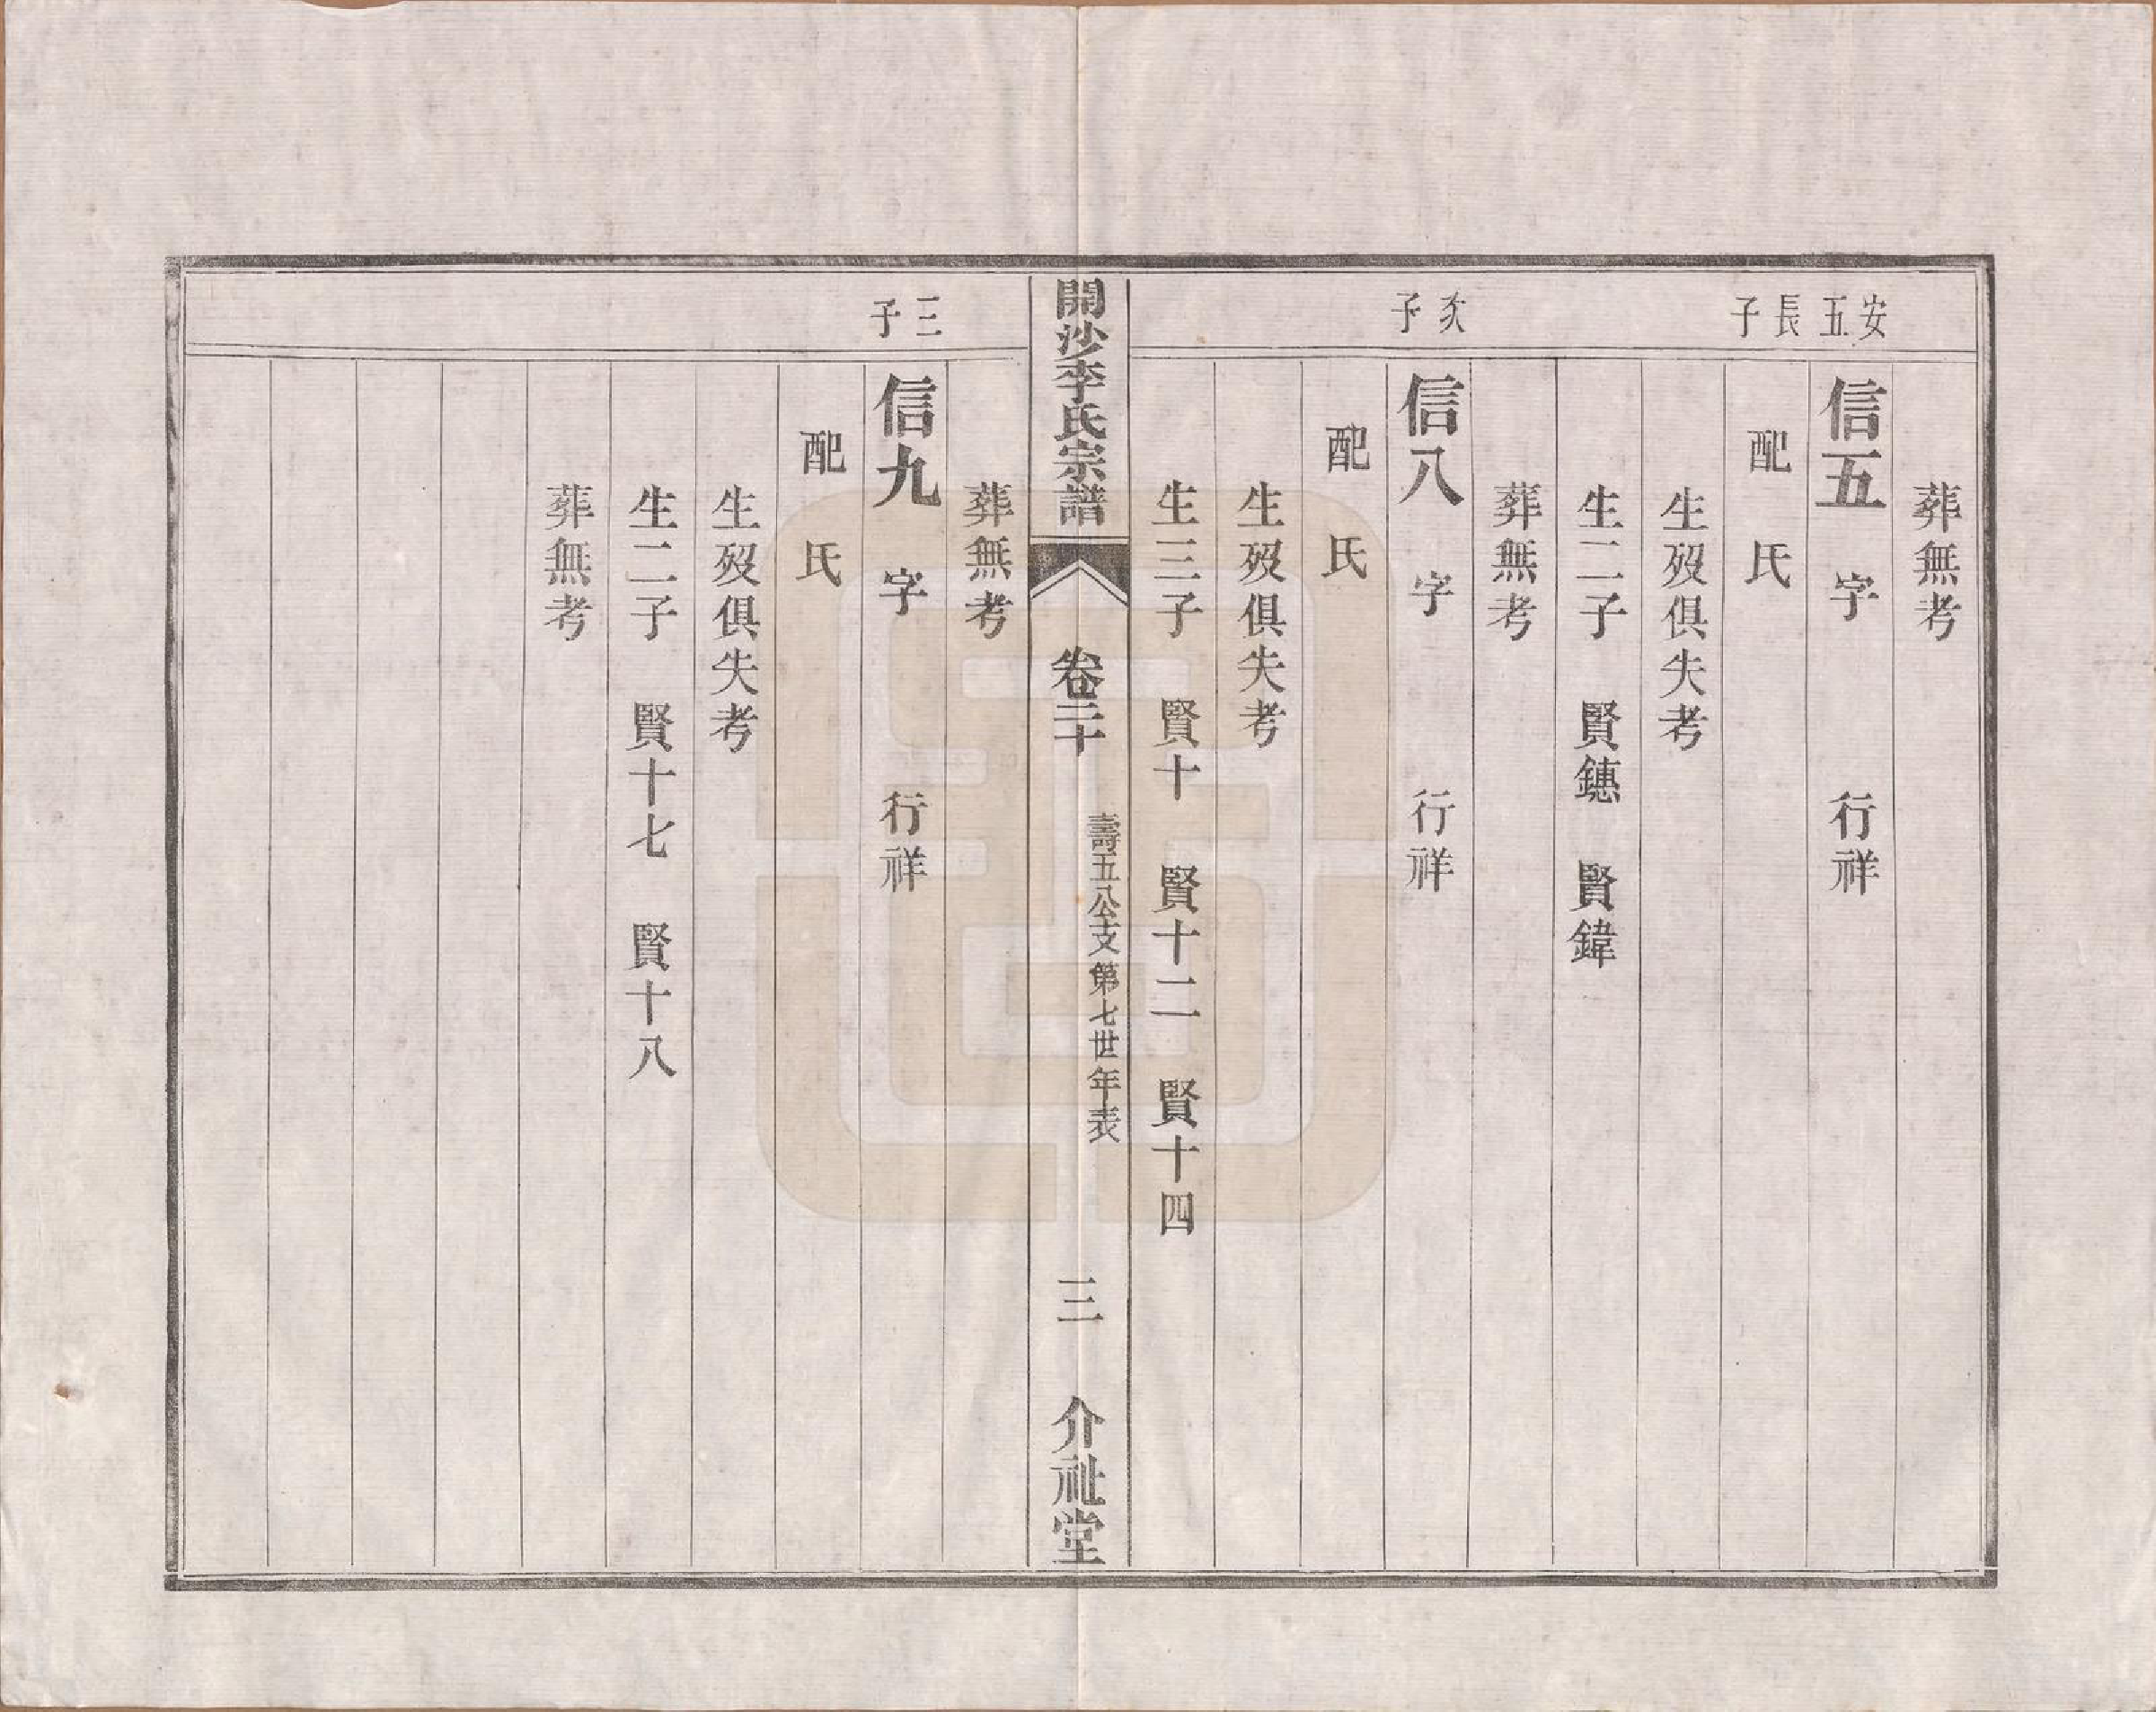 葬無考
安五長子
信五　字　行祥
配　氏
生歿俱失考
生二子　賢鏸　賢鍏
葬無考
次子
信八　字　行祥
配　氏
生歿俱失考
生三子　賢十　賢十二　賢十四
開沙李氏宗譜　卷二十　壽五八公支第七世年表　三　介祉堂
葬無考
三子
信九　字　行祥
配　氏
生歿俱失考
生二子　賢十七　賢十八
葬無考